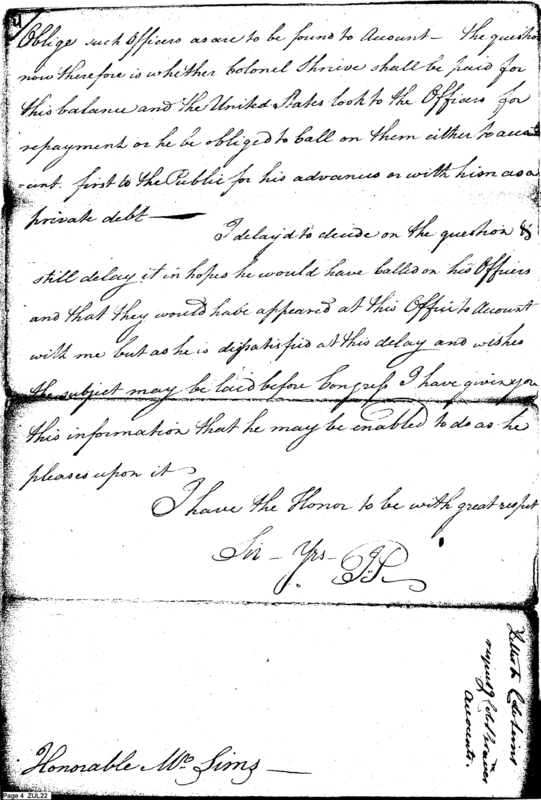 4
Oblige such Officers as are to be found to Account — the question
now therefore is whether Colonel Shrieve shall be paid for
this balance and the United States look to the Officers for
repayment or he be obliged to Call on them either to acco
unt first to the Public for his advances or with him as a
private debt —
I delay'd to decide on the question &
still delay it in hopes he would have called on his Officers
and that they would have appeared at this Office to Account
with me but as he is dissatisfied at this delay and wishes
the subject may be laid before Congress I have given you
this information that he may be enabled to do as he
pleases upon it
I have the Honor to be with great respect
Sir — Yrs —
Honorable Mr. Sims —
Accounts.
Page 4 ZUL22